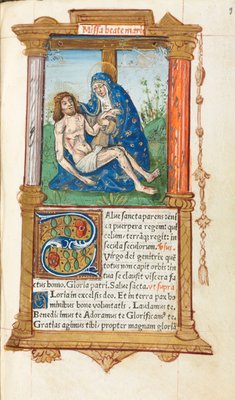 Missa beate marie
Salue sancta parens eni
xa puerpera regem: qui
celum / terrāq; regit: in
secula seculorum. Psus.
Virgo dei genitrix que
totus non capit orbis: in tua
se clausit viscera fa
ctus homo. Gloria patri. Salue sācta. vt supra
Gloria in excelsis deo. Et in terra pax ho
minibus bone voluntatis. Laudamus te.
Benedicimus te Adoramus te Glorificam⁹ te.
Gratias agimus tibi propter magnam gloriā